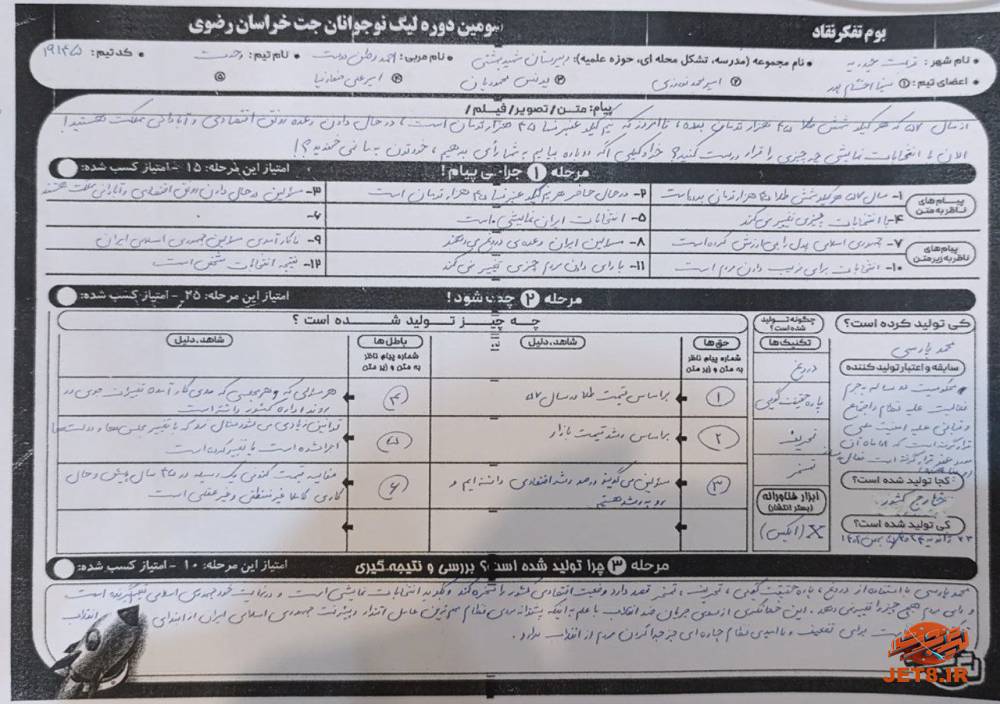 بوم تفکر نقاد
سومین دوره لیگ نوجوانان جت خراسان رضوی
• نام شهر: تربت حیدریه • نام مجموعه (مدرسه، تشکل محله ای، حوزه علمیه): دبیرستان شهید بهشتی • نام مربی: احمد • نام تیم: وحدت • کد تیم: ۱۹۱۴۵
• اعضای تیم: ① سینا احتشام پور ② امیر محمد نوروزی ③ یونس محمودیان ④ امیرعلی ⑤
پیام: متن/ تصویر/ فیلم/
از سال ۵۷ که هر کیلو شش طلا ۴۵ هزار تومان بوده، تا امروز که نیم کیلو عنبر نسا ۴۵ هزار تومان است، در حال دادن وعده رونق اقتصادی و آبادانی مملکت هستید!
الان با انتخابات نمایش چه چیزی را قراره درست کنید؟ خداوکیلی اگه دوباره بیایم به شما رأی بدهیم، خودتون به ما نمی خندید؟!
مرحله ① چرا می پیام!
امتیاز این مرحله: ۱۵ - امتیاز کسب شده:
پیام های ناظر به متن
۱- سال ۵۷ هر کیلو شش طلا ۴۵ هزار تومان بوده است
۲- در حال حاضر هر نیم کیلو عنبر نسا ۴۵ هزار تومان است
۳- مسئولین در حال دادن رونق اقتصادی و آبادانی مملکت هستند
۴- با انتخابات چیزی تغییر نمی کند
۵- انتخابات ایران نمایشی است
۶- .
پیام های ناظر به زیر متن
۷- جمهوری اسلامی پول را بی ارزش کرده است
۸- مسئولین ایران وعده ی دروغ می دهند
۹- ناکارآمدی مسئولین جمهوری اسلامی ایران
۱۰- انتخابات برای فریب دادن مردم است
۱۱- با رای دادن مردم چیزی تغییر نمی کند
۱۲- نتیجه انتخابات مشخص است
مرحله ② چه می شود!
امتیاز این مرحله: ۲۵ - امتیاز کسب شده:
کی تولید کرده است؟
محمد پارسی
سابقه و اعتبار تولید کننده
محکومیت دو ساله به جرم
فعالیت علیه نظام و اجتماع
و تبانی علیه امنیت ملی
کجا تولید شده است؟
خارج کشور
کی تولید شده است؟
چگونه تولید شده است؟
تکنیک ها
دروغ
پاره حقیقت گویی
تحریف
تمسخر
ابزار فناورانه (بستر انتشار)
X (ایکس)
چه چیز تولید شده است ؟
حق ها
شماره پیام ناظر به متن و زیر متن
شاهد، دلیل
باطل ها
شماره پیام ناظر به متن و زیر متن
شاهد، دلیل
① براساس قیمت طلا در سال ۵۷
② براساس رشد قیمت بازار
③ مسئولین می گویند درصد رشد اقتصادی داشته ایم و
رو به رشد هستیم
④ هر مسئولی که و هر مجلسی که روی کار آمده تغییرات خوبی در
روند اداره کشور داشته است
قوانین زیادی می شود مثال زد که با تغییر مجلس ها و دولت ها
اجرا شده است یا تغییر کرده است
⑥ مقایسه قیمت کنونی یک وسیله در ۴۵ سال پیش و حال
کاری کاملا غیر منطقی و غیر عقلی است
مرحله ③ چرا تولید شده است؟ بررسی و نتیجه گیری
امتیاز این مرحله: ۱۰ - امتیاز کسب شده:
محمد پارسی با استفاده از دروغ، پاره حقیقت گویی، تحریف، تمسخر قصد دارد وضعیت اقتصادی کشور را مسخره کند و بگوید انتخابات نمایشی است و در نهایت خود جمهوری اسلامی تصمیم گیرنده است
و رای مردم هیچ چیز را تغییر نمی دهد. این خط فکری از سوی جریان ضد انقلاب با علم به اینکه پشتوانه برای نظام مهم ترین عامل اقتدار و پیشرفت جمهوری اسلامی ایران از ابتدای انقلاب
است برای تضعیف و ناامیدی نظام چاره ای جز جدا کردن مردم از انقلاب ندارد.
JET8.IR